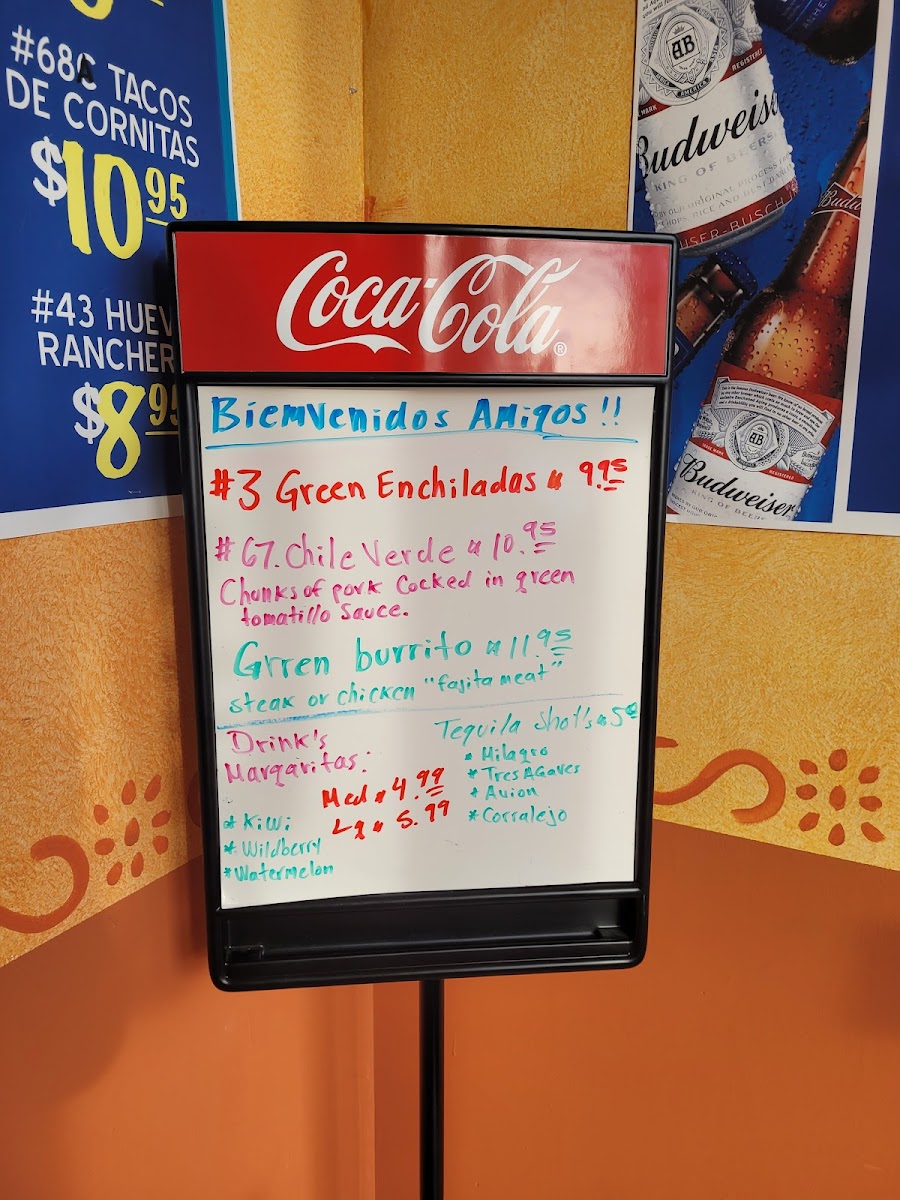 #68A TACOS
DE CORNITAS
$10.95
#43 HUEV
RANCHER
$8.95
Coca-Cola®
Biemvenidos Amigos!!
#3 Green Enchiladas 9.95
#67. Chile Verde 10.95
Chunks of pork Cocked in green
tomatillo Sauce.
Grren burrito 11.95
steak or chicken "fajita meat"
Drink's
Margaritas:
Med 4.99
Lg 5.99
* Kiwi
* Wildberry
* Watermelon
Tequila Shot's 5.00
* Milagro
* Tres Agaves
* Avion
* Corralejo
AB
REGISTERED
MARK
AMERICA
Budweis
KING OF BEERS
USER-BUSCH
Budw
AB
Budweiser
KING OF BEERS